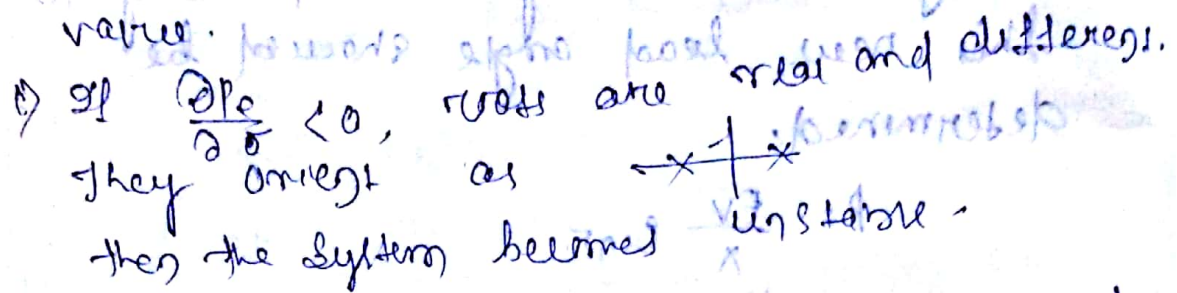 value.
1) If ∂Pe/∂δ < 0, roots are real and different.
They orient as
then the system becomes unstable.